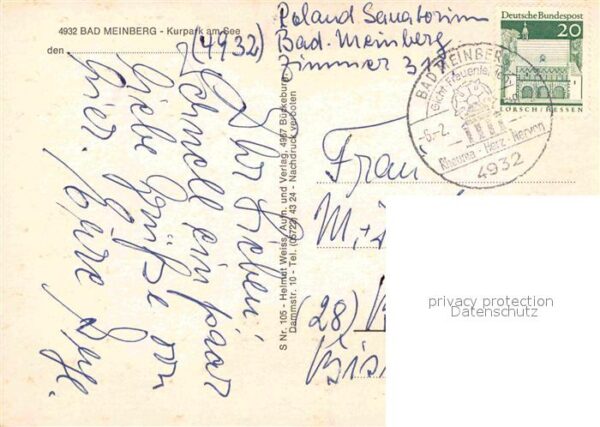 4932 BAD MEINBERG - Kurpark am See
den
(4932)
Roland Sanatorium
Bad-Meinberg
Zimmer 317
Ihr Lieben!
Schnell ein paar
liebe Grüße von
hier. Eure
S Nr. 105 - Helmut Weiss, Aufn. und Verlag, 4967 Bückeburg
Dammstr. 10 - Tel. (05722) 43 24 - Nachdruck verboten
Deutsche Bundespost
20
LORSCH/HESSEN
BAD MEINBERG
Gicht
-6.-2.
Rheuma - Herz - Nerven
4932
Frau
(28)
privacy protection
Datenschutz